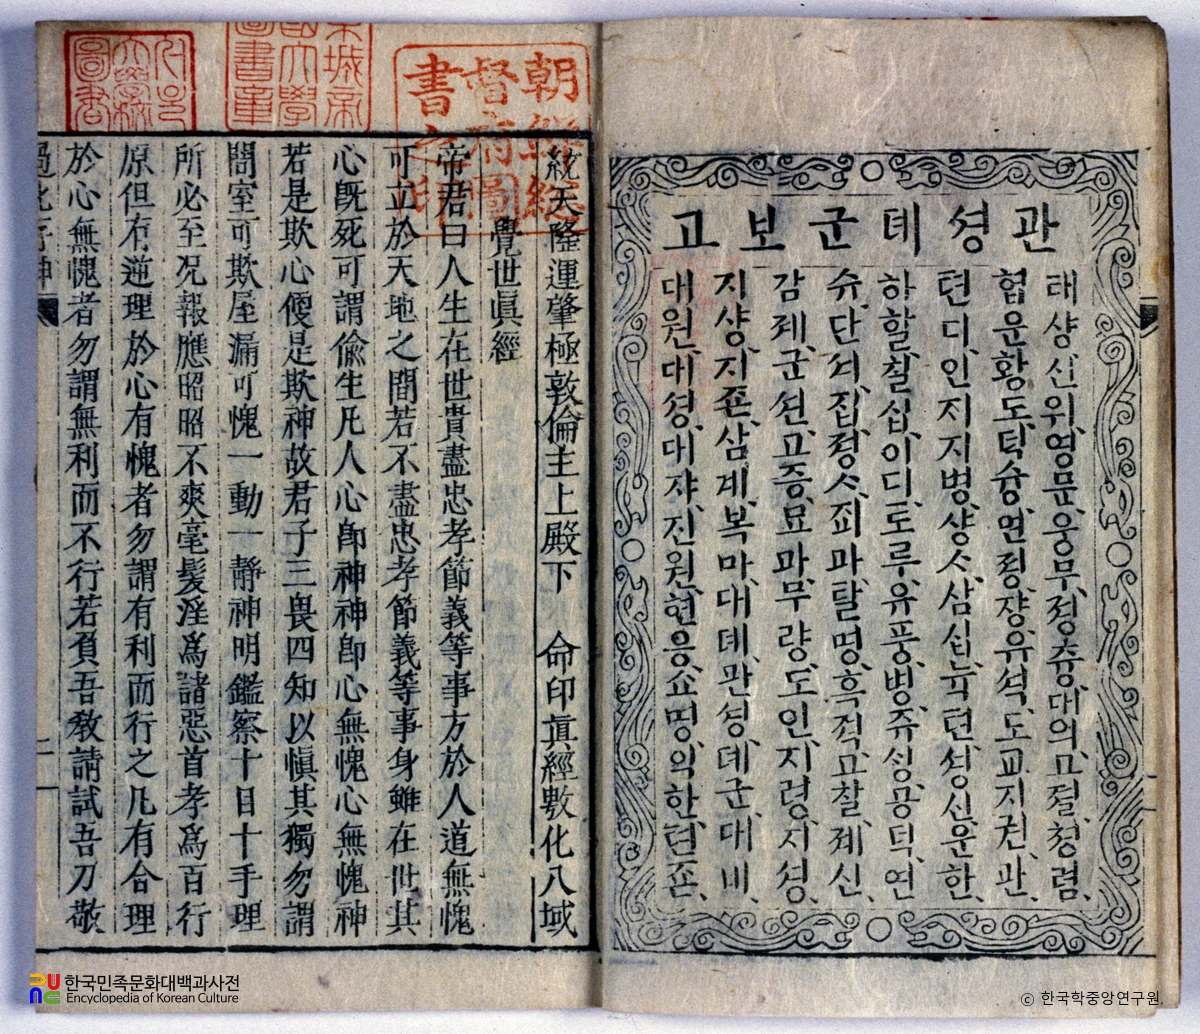 관셩뎨군보고
태샹신위영문웅무졍츙대의고졀쳥렴
협운황도탁슝연졍쟝유석도교지권관
텬디인지지병샹ᄉ삼십뉵텬셩신운한
하할칠십이디도루유풍병쥬싱공덕연
슈단셔집졍ᄉ죄과탈명흑젹고찰졔신
감졔군션고증묘과무량도인지령지셩
지샹지죤삼계복마대뎨관셩뎨군대비
대원대셩대쟈진원현응쇼명익한텬죤
朝鮮總督府圖書之印
統天隆運肇極敦倫主上殿下 命印眞經敷化八域
覺世眞經
帝君曰人生在世貴盡忠孝節義等事方於人道無愧
可立於天地之間若不盡忠孝節義等事身雖在世其
心旣死可謂偸生凡人心卽神神卽心無愧心無愧神
若是欺心便是欺神故君子三畏四知以愼其獨勿謂
闇室可欺屋漏可愧一動一靜神明鑑察十目十手理
所必至况報應昭昭不爽毫髮淫爲諸惡首孝爲百行
原但有逆理於心有愧者勿謂有利而行之凡有合理
於心無愧者勿謂無利而不行若負吾敎請試吾刀敬
過化存神 二
한국민족문화대백과사전
Encyclopedia of Korean Culture
© 한국학중앙연구원